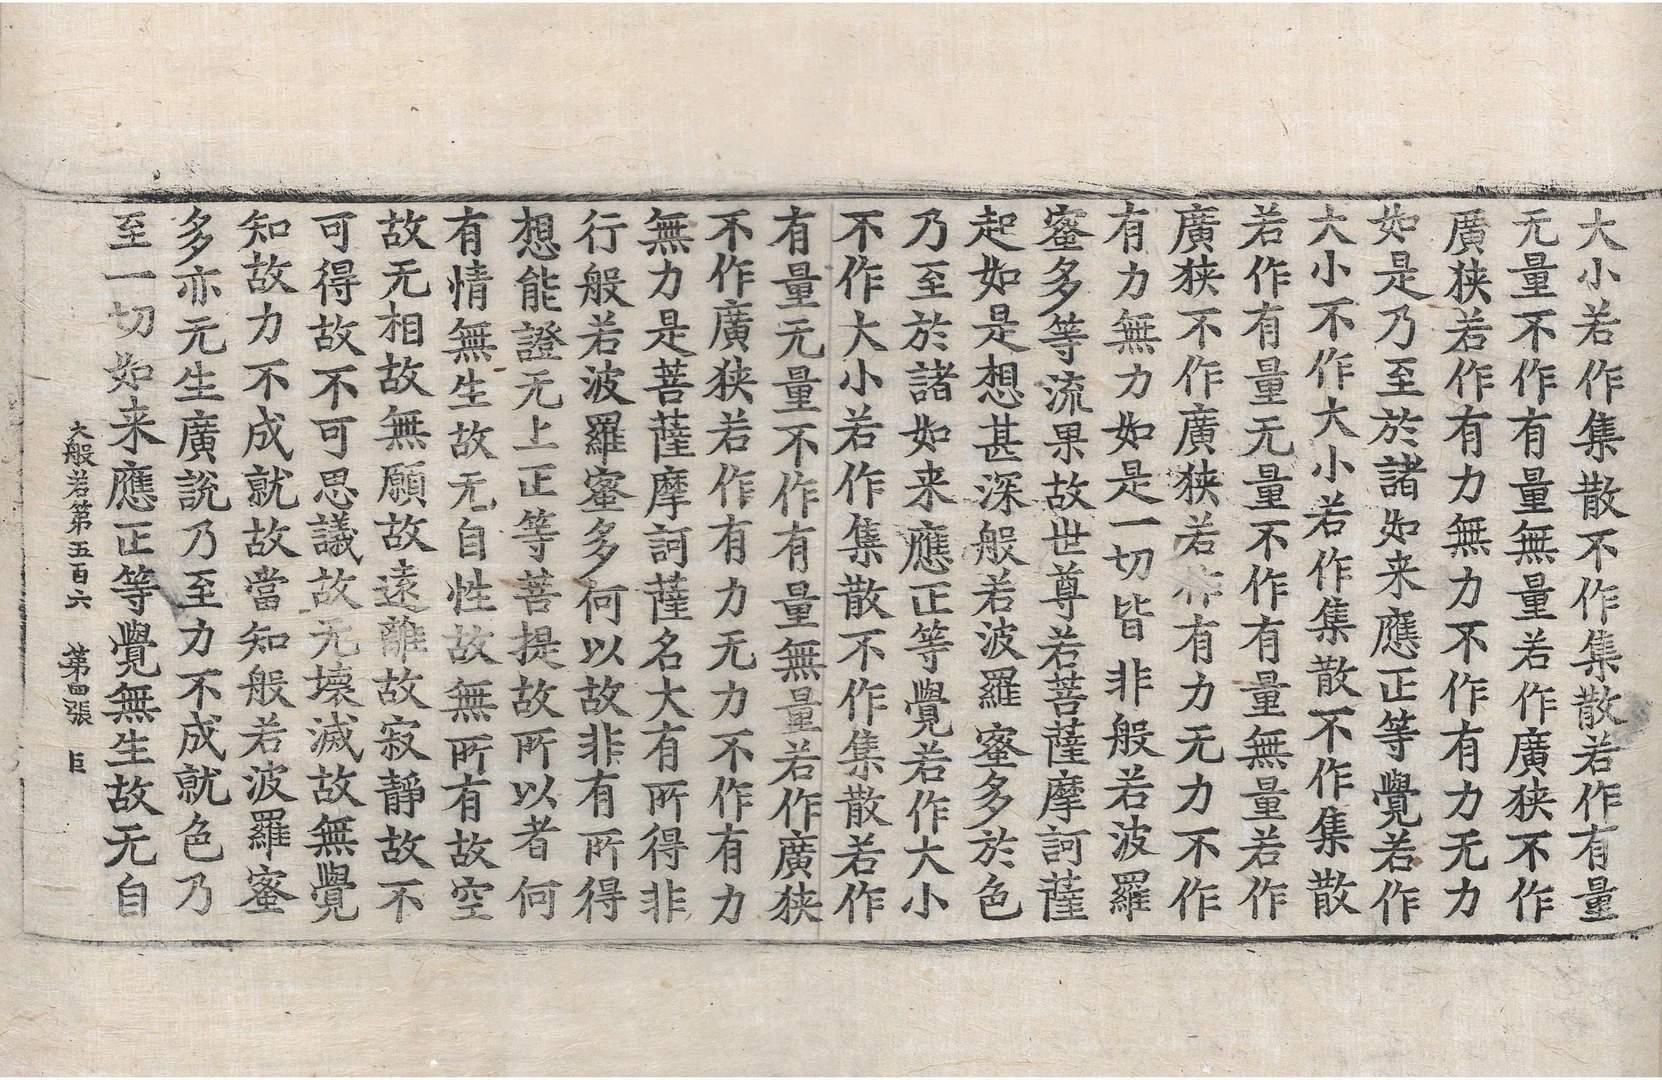 大小若作集散不作集散若作有量
无量不作有量無量若作廣狹不作
廣狹若作有力無力不作有力无力
如是乃至於諸如来應正等覺若作
大小不作大小若作集散不作集散
若作有量无量不作有量無量若作
廣狹不作廣狹若作有力无力不作
有力無力如是一切皆非般若波羅
蜜多等流果故世尊若菩薩摩訶薩
起如是想甚深般若波羅蜜多於色
乃至於諸如来應正等覺若作大小
不作大小若作集散不作集散若作
有量无量不作有量無量若作廣狹
不作廣狹若作有力无力不作有力
無力是菩薩摩訶薩名大有所得非
行般若波羅蜜多何以故非有所得
想能證无上正等菩提故所以者何
有情無生故无自性故無所有故空
故无相故無願故遠離故寂靜故不
可得故不可思議故无壞滅故無覺
知故力不成就故當知般若波羅蜜
多亦无生廣說乃至力不成就色乃
至一切如来應正等覺無生故无自
大般若第五百六　第四張　臣